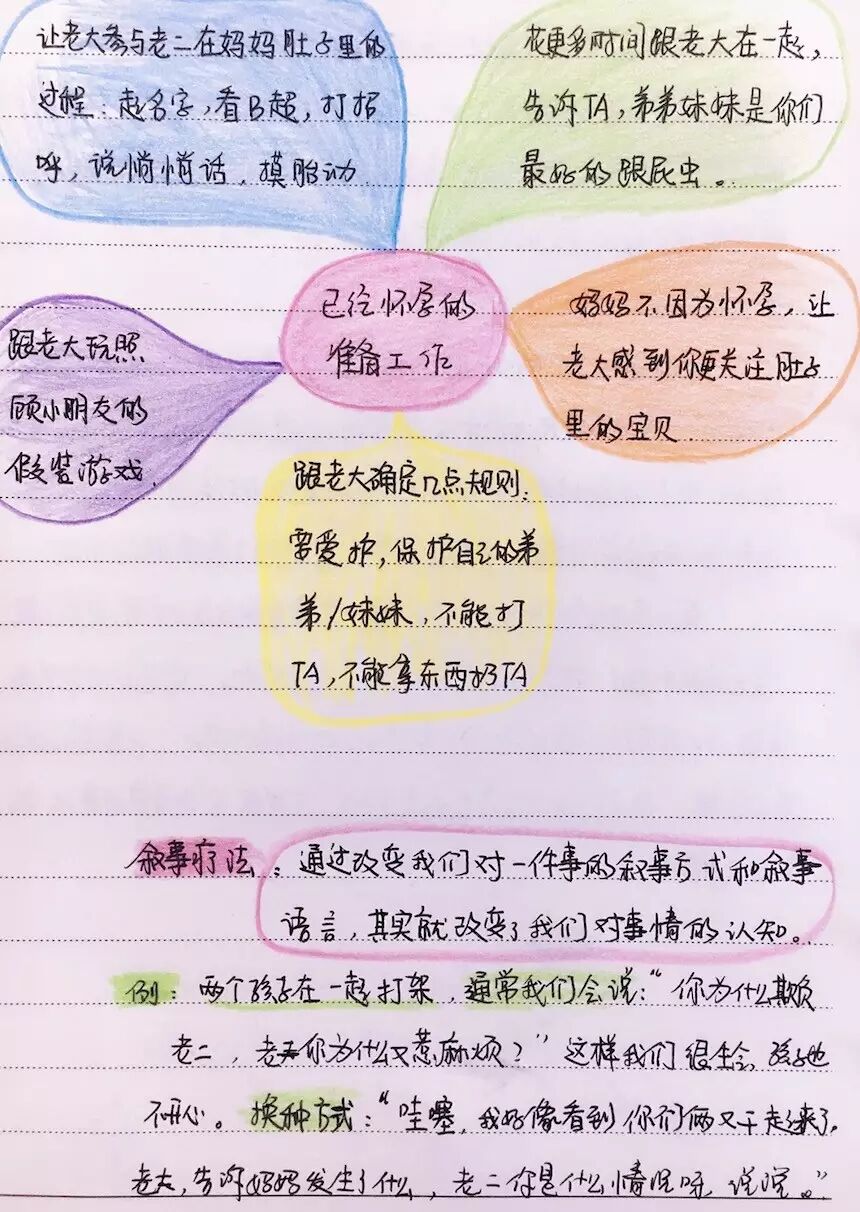 让老大参与老二在妈妈肚子里的
过程：起名字，看B超，打招
呼，说悄悄话，摸胎动
花更多时间跟老大在一起，
告诉TA，弟弟妹妹是你们
最好的跟屁虫。
已经怀孕的
准备工作
妈妈不因为怀孕，让
老大感到你更关注肚子
里的宝贝.
跟老大玩照
顾小朋友的
假装游戏.
跟老大确定几点规则.
需爱护，保护自己的弟
弟/妹妹，不能打
TA，不能拿东西扔TA
叙事疗法：通过改变我们对一件事的叙事方式和叙事
语言，其实就改变了我们对事情的认知。
例：两个孩子在一起打架，通常我们会说：“你为什么欺负
老二，老你为什么又惹麻烦？”这样我们很生会，孩子也
不开心。换种方式：“哇噻，我好像看到你们俩又干起来了.
老大，告诉妈妈发生了什么，老二你是什么情况呀，说说。”